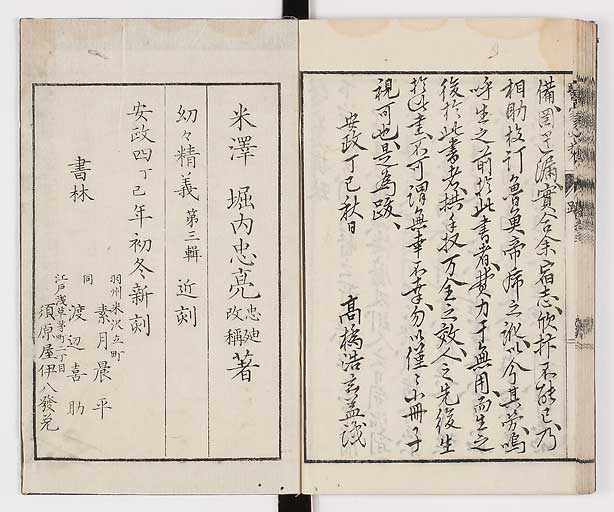 備罔遺漏實合余宿志欣抃不能已乃
相助校訂魯魚帝虎之訛以分其勞嗚
呼生之前於此書者費力于無用而生之
後於此書者拱手收万全之效人之先後生
於此書不可謂無幸不幸勿以僅〻小冊子
視可也是為跋
安政丁巳秋日
高橋浩玄益識
米澤 堀内忠亮 忠廸改稱 著
幼々精義 第三輯 近刻
安政四丁巳年初冬新刻
書林
羽州米沢立町
素月晨平
同
渡辺喜助
江戸浅草茅町二丁目
須原屋伊八發兌